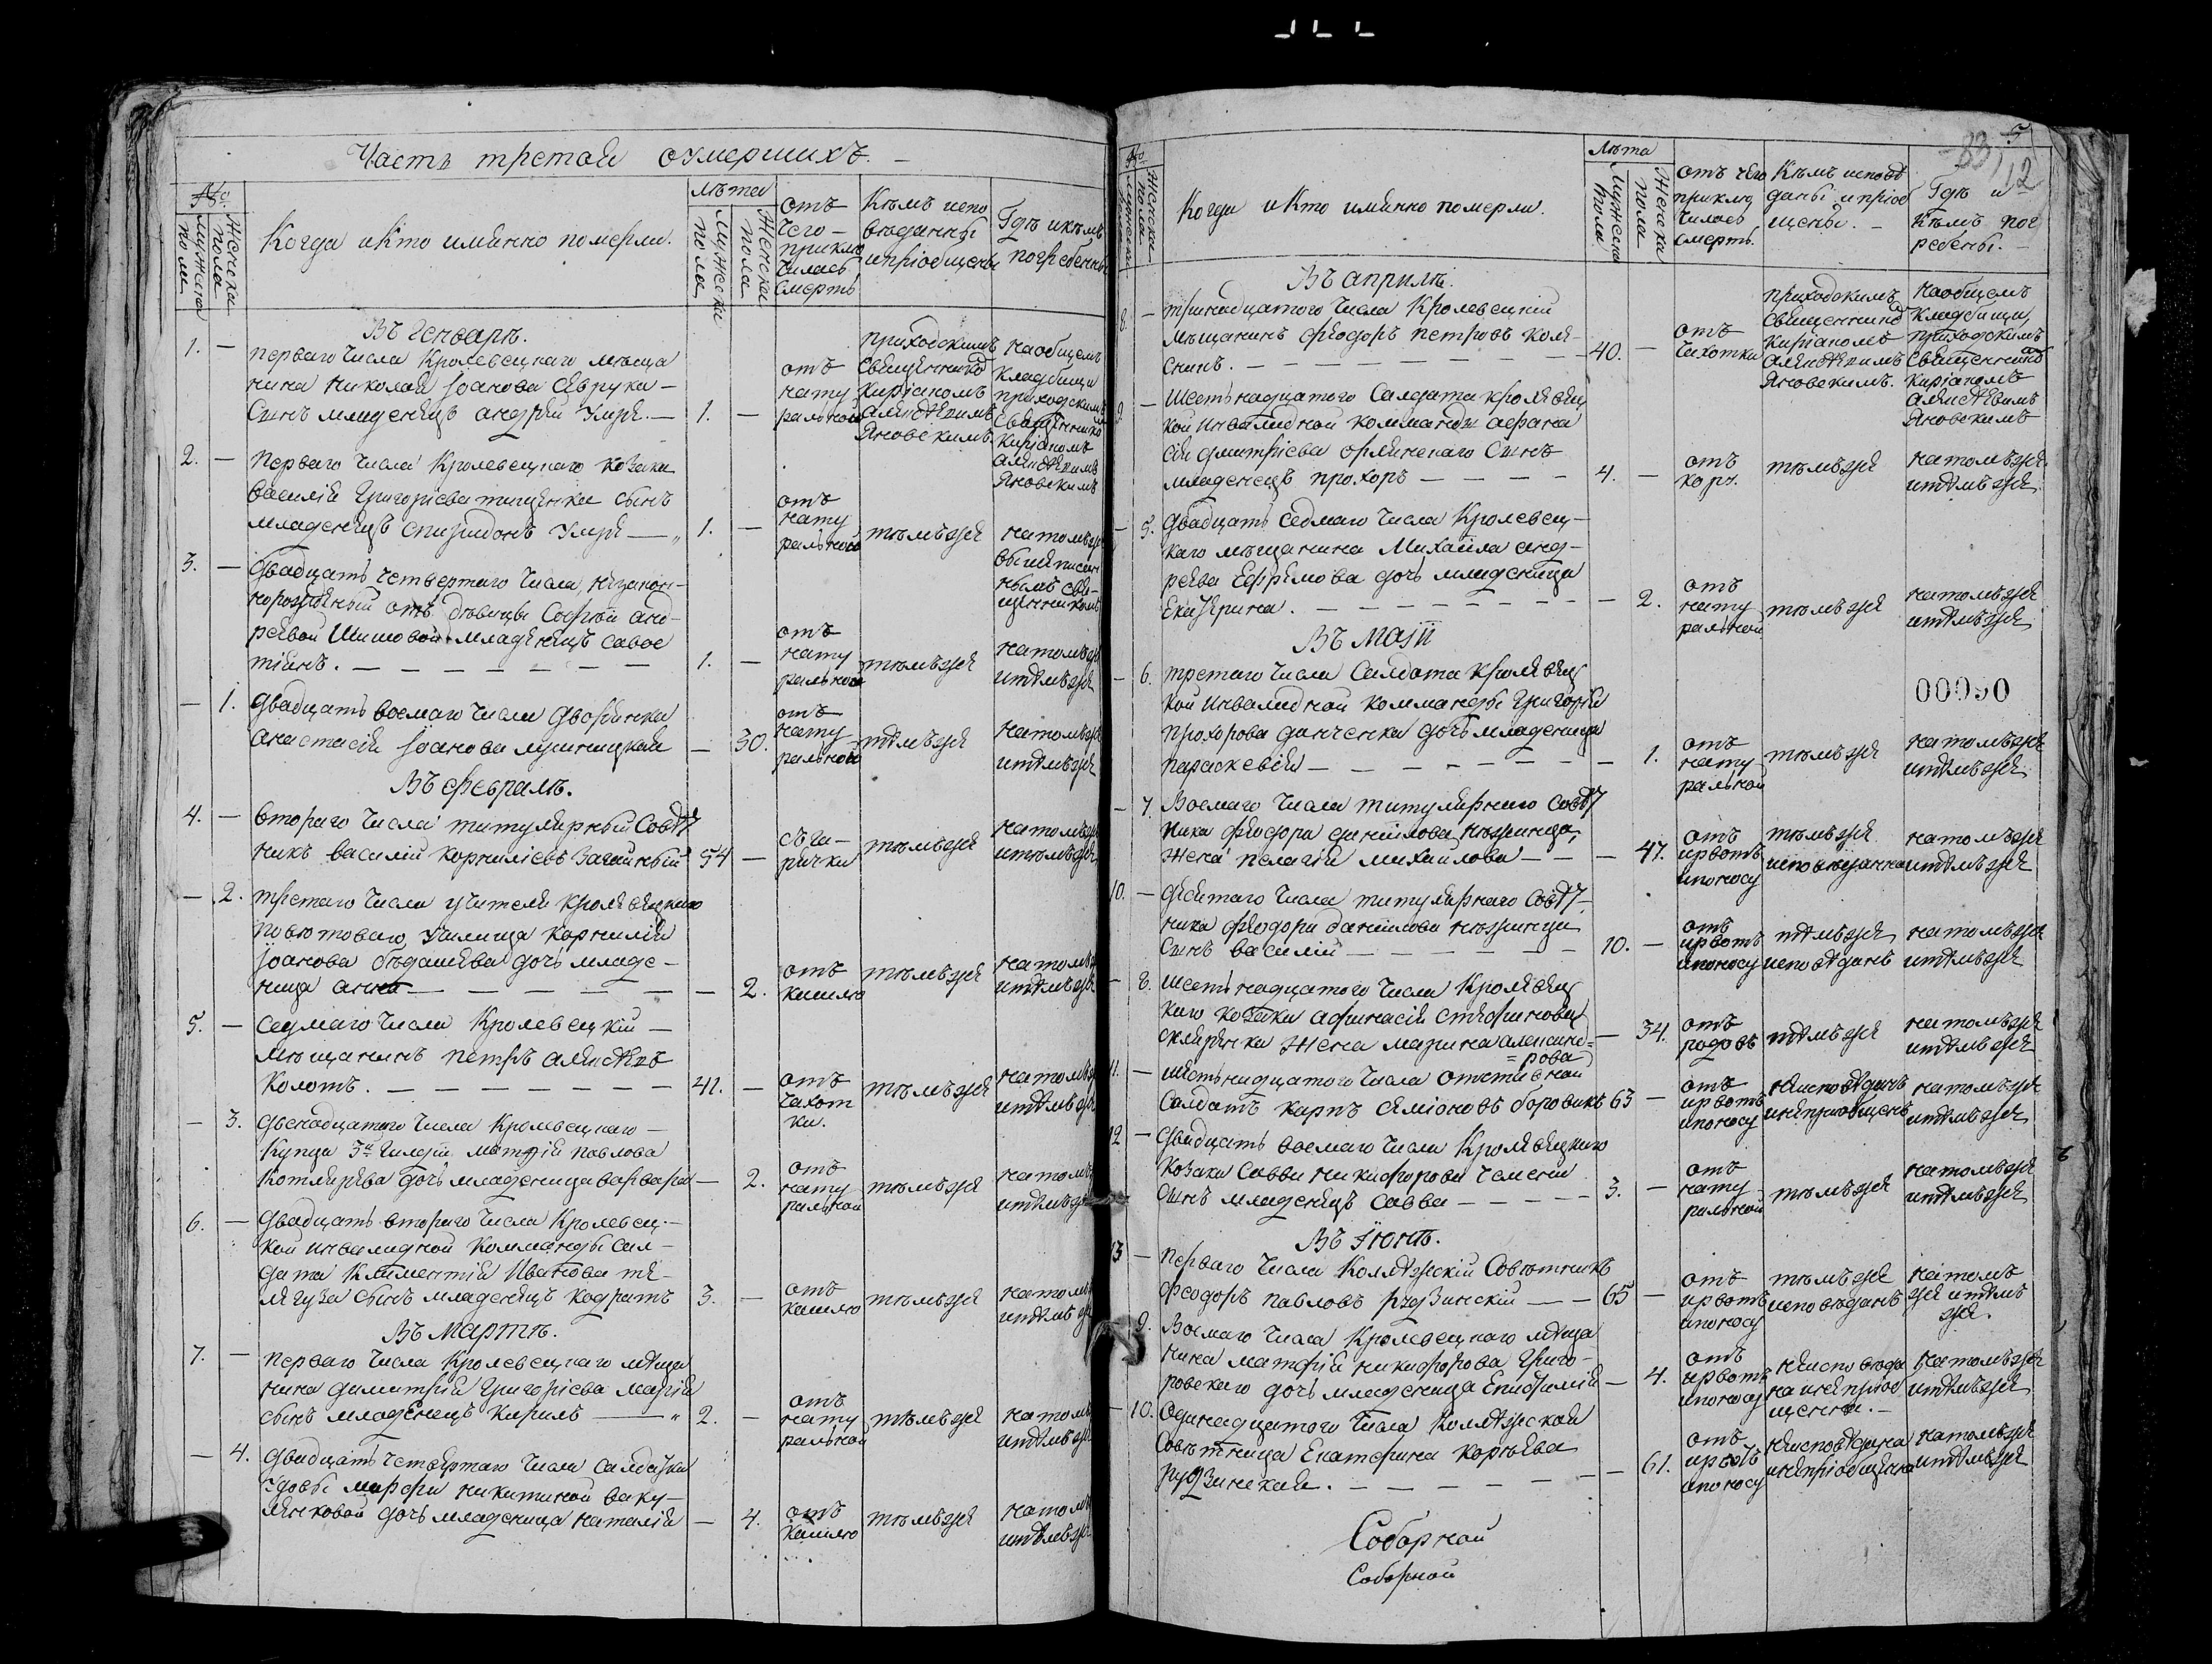 Часть третая оумершихъ.
№.
Мужеска пола
Женска пола
Когда и кто имянно померли.
лѣта
Мужеска пола
Женска пола
отъ
чего
приклю
чилась
смерть
Кѣмъ испо
вѣданны
и пріобщены
Гдѣ и кѣмъ
погребенны
Въ Генварѣ.
1. — перваго числа Кролевецкаго мѣща
нина Николая Іоанова Яврука
Сынъ младенецъ андрей Умре. — 1. —
отъ
нату
ральной
приходскимъ
Священико
Киріакомъ
Алексѣевимъ
Яновскимъ
на общемъ
кладбищи
приходскимъ
Священнико
Киріакомъ
Алексѣевимъ
Яновскимъ
2. — Перваго числа Кролевецкаго козака
Василія Григоріева тищенка сынъ
младенецъ спиридонъ Умре — 1. —
отъ
нату
ральной
тѣмъ же
на томъ же
вышеписан
нымъ свя
щенникомъ
3. — Двадцать четвертаго числа, незакон-
норожденый отъ дѣвицы Софіи анд-
реевой Шиловой младенецъ савос
тіянъ. — — — — — — — 1. —
отъ
нату
ральной
тѣмъ же
на томъ же
и тѣмъ же
— 1. Двадцать восмаго числа Дворянка
анастасія Іоанова лушницкая — 30.
отъ
нату
ральной
тѣмъ же
на томъ же
и тѣмъ же
Въ февралѣ.
4. — втораго числа титулярный Совѣт
никъ василій корниліевъ Загайный 54 —
съ га-
рячки
тѣмъ же
на томъ же
и тѣмъ же
— 2. третаго числа учителя кролевецкаго
повѣтоваго училища корнилія
Іоанова бѣдашева дочь младе-
ница анна — — — — — — 2.
отъ
кашлю
тѣмъ же
на томъ же
и тѣмъ же
5. — седмаго числа Кролевецкій —
мѣщанинъ петръ алексѣевъ
Колотъ. — — — — — — — 41. —
отъ
чахот
ки.
тѣмъ же
на томъ же
и тѣмъ же
— 3. Двенадцатого числа Кролевецкаго —
Купца 3й Гилдіи матфія павлова
Котлярева дочь младеница варвара — 2.
отъ
нату
ральной
тѣмъ же
на томъ же
и тѣмъ же
6. — Двадцать втораго числа Кролевец-
кой инвалидной комманды сал-
дата Климентія Иванова те-
лягуза сынъ младенецъ кодратъ 3. —
отъ
кашлю
тѣмъ же
на томъ же
и тѣмъ же
Въ мартѣ.
7. — перваго числа Кролевецкаго мѣща
нина димитрія Григоріева
сынъ младенецъ кирилъ — 2. —
отъ
нату
ральной
тѣмъ же
на томъ же
и тѣмъ же
— 4. Двадцать четвертаго числа салдатки
удовы марфи никитиной ваку-
ленковой дочь младеница наталія — 4.
отъ
кашлю
тѣмъ же
на томъ же
и тѣмъ же
№.
Мужеска пола
Женска пола
Когда и кто имянно померли.
лѣта
Мужеска пола
Женска пола
отъ чего
приклю
чилась
смерть.
Кѣмъ исповѣ
даны и пріоб
щены. —
Гдѣ и
кѣмъ пог
ребены. —
5
83/12
Въ априлѣ.
8. — тринадцатого числа Кролевецкій
мѣщанинъ Феодоръ петровъ коля-
снинъ. — — — — — — 40. —
отъ
чахотки
приходскимъ
священнико
киріакомъ
алексѣевимъ
Яновскимъ.
на общемъ
кладбищи
приходскимъ
священнико
киріакомъ
алексѣевимъ
Яновскимъ
9. — Шестьнадцатого Салдата кролевец
кой инвалидной комманды афана
сія дмитріева орлянскаго сынъ
младенецъ прохоръ — — — — 4. —
отъ
кору.
тѣмъ же
на томъ же
и тѣмъ же
— 5. Двадцать седмаго числа Кролевец-
каго мѣщанина Михаила анд-
реева Ефремова дочь младеница
Екатерина. — — — — — — — 2.
отъ
нату
ральной
тѣмъ же
на томъ же
и тѣмъ же
Въ Маіи
— 6. третаго числа Салдата кролевец
кой инвалидной комманды Григорія
прохорова данченка дочь младеница
параскевія — — — — — — — 1.
отъ
нату
ральной
тѣмъ же
на томъ же
и тѣмъ же
00090
— 7. Восмаго числа титулярнаго совѣт
ника Феодора даніилова нѣжинца,
жена пелагія михаилова — — — 47.
отъ
црвотѣ
и поносу
тѣмъ же
исповѣданна
на томъ же
и тѣмъ же
10. — Десятаго числа титулярнаго совѣт-
ника Феодора даніилова нѣжинца
сынъ василій — — — — — 10. —
отъ
црвотѣ
и поносу
тѣмъ же
исповѣданъ
на томъ же
и тѣмъ же
— 8. шестьнадцатого числа Кролевец
каго козака афанасія стефанова
скляренка жена марина александ=
=рова — 34.
отъ
родовъ
тѣмъ же
на томъ же
и тѣмъ же
11. — шестьнадцатого числа отставной
Салдатъ карпъ симіоновъ боровикъ 63 —
отъ
црвотѣ
и поносу
неисповѣданъ
и непріобщенъ
на томъ же
и тѣмъ же
12 — Двадцать восмаго числа Кролевецкаго
козака саввы никифорова
сынъ младенецъ савва — — — — — 3. —
отъ
нату
ральной
тѣмъ же
на томъ же
и тѣмъ же
Въ Іюнѣ.
13 — перваго числа Коллѣжскій Совѣтникъ
Феодоръ павловъ рудзинскій — — 65 —
отъ
црвотѣ
и поносу
тѣмъ же
исповѣданъ
на томъ
же и тѣмъ
же.
9. Восмаго числа Кролевецкаго мѣща
нина матфія никифорова Григо-
ровскаго дочь младеница Епистимія — 4.
отъ
црвотѣ
и поносу
неисповѣда
на и непріоб
щенна. —
на томъ же
и тѣмъ же
— 10. Одинадцатого числа Коллѣжская
Совѣтница Екатерина корнѣева
рудзинская. — — — — — — — 61.
отъ
црвотѣ
и поносу
неисповѣдана
и непріобщена
на томъ же
и тѣмъ же
Соборной
Соборной